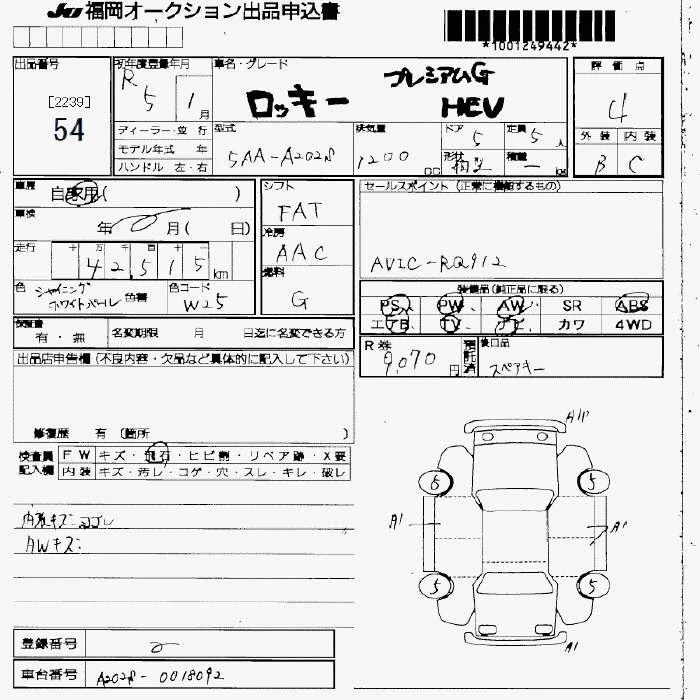 JU 福岡オークション出品申込書
*1001249442*
出品番号 初年度登録年月 車名・グレード 評価点
[2239]
54
R 5 1月
ロッキー プレミアムG HEV
4
ディーラー・並行
モデル年式 年
ハンドル 左・右
型式 5AA-A202S
排気量 1200 cc
ドア 5 定員 5人
形状 積載 - kg
外装 内装
B C
車歴 自家用( )
車検 年 月( 日)
走行 十 万 千 百 十
42,515 km
色 シャイニングホワイトパール 色替 色コード W25
シフト FAT
冷房 AAC
燃料 G
セールスポイント (正常に機能するもの)
AVIC-RQ912
装備品(純正品に限る)
PS PW AW SR ABS
エアB TV ナビ カワ 4WD
保証書 有・無 名変期限 月 日迄に名変できる方
R券 9,070円 預託済 後日品 スペアキー
出品店申告欄(不良内容・欠品など具体的に記入して下さい)
修復歴 有 (箇所 )
検査員記入欄 FW キズ・飛石・ヒビ割・リペア跡・X要
内装 キズ・汚レ・コゲ・穴・スレ・キレ・破レ
内張キズ ヨゴレ
AWキズ
A1P
6 5
A1 A1
5 5
A1
登録番号
車台番号 A202S-0018092